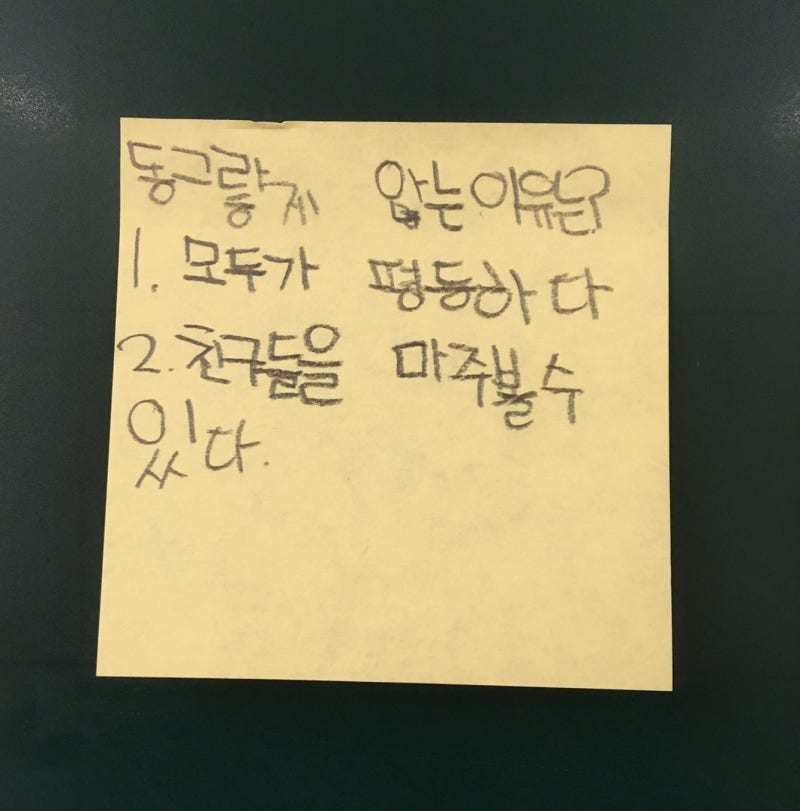 동그랗게 앉는 이유는?
1. 모두가 평등하다
2. 친구들을 마주볼 수
있다.